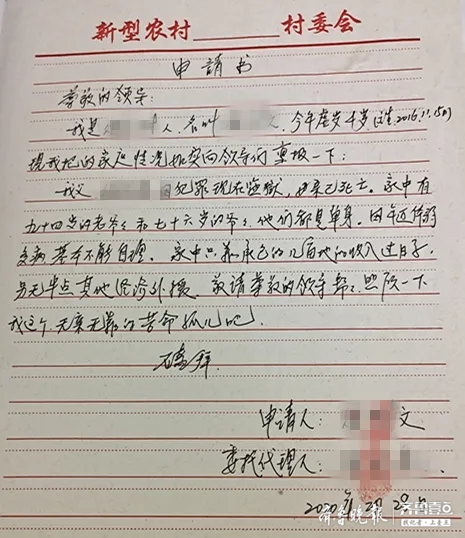 新型农村 村委会
申請书
尊敬的领导:
我是 人,名叫 文,今年虚岁4岁(生2016.11.15日)
现我把的家庭情况如实向领导们禀报一下:
我父 因犯罪现在监狱,母亲已死亡。家中有
九十四岁的老爷爷和七十六岁的爷爷,他们都是单身。因年近体弱
多病基本不能自理。家中只靠承包的几亩地的收入过日子,
另无半点其他经济外援。敬请尊敬的领导帮帮照顾一下
我这个无辜无罪的苦命孤儿吧!
磕拜
申请人: 文
委托代理人:
2020年
齐鲁晚报
齐鲁壹点